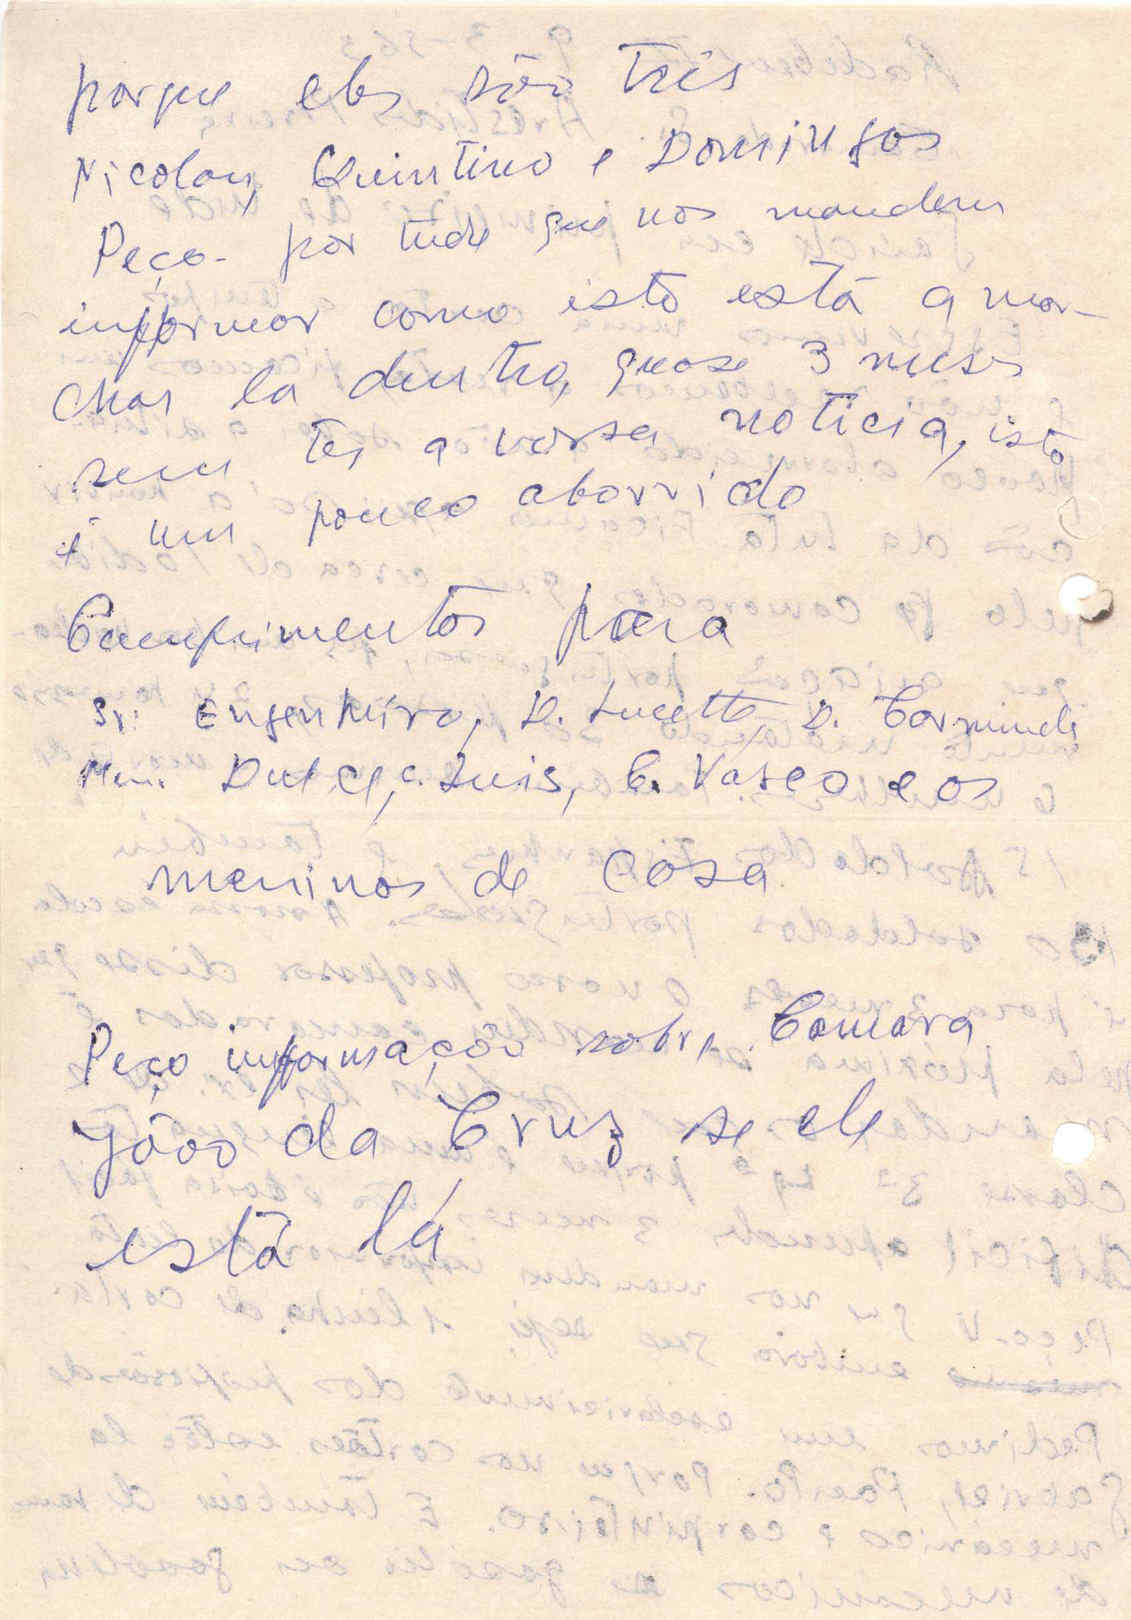 porque eles são três
Nicolau, Quintino e Domingos
Peço- por tudo que nos mandem
informar como isto está a mar-
char la dentro, quase 3 meses
sem ter a vossa noticia, isto
é um pouco aborrido
Cumprimentos para
Sr. Engenheiro, D. Lucette, D. Carminda
Men. Dulce, c. Luis, C. Vasco e os
meninos de casa
Peço informação sobre Camara
João da Cruz se ele
está lá